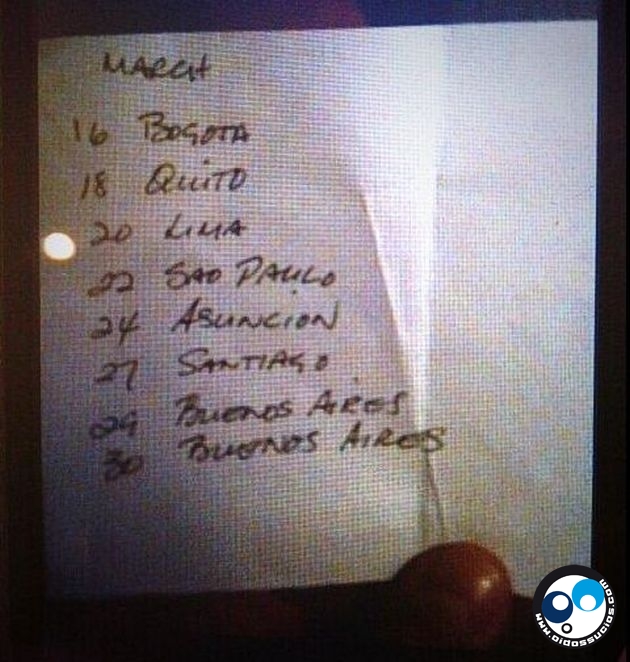 MARCH
16 BOGOTA
18 QUITO
20 LIMA
22 SAO PAULO
24 ASUNCION
27 SANTIAGO
29 BUENOS AIRES
30 BUENOS AIRES
www.oidossucios.com